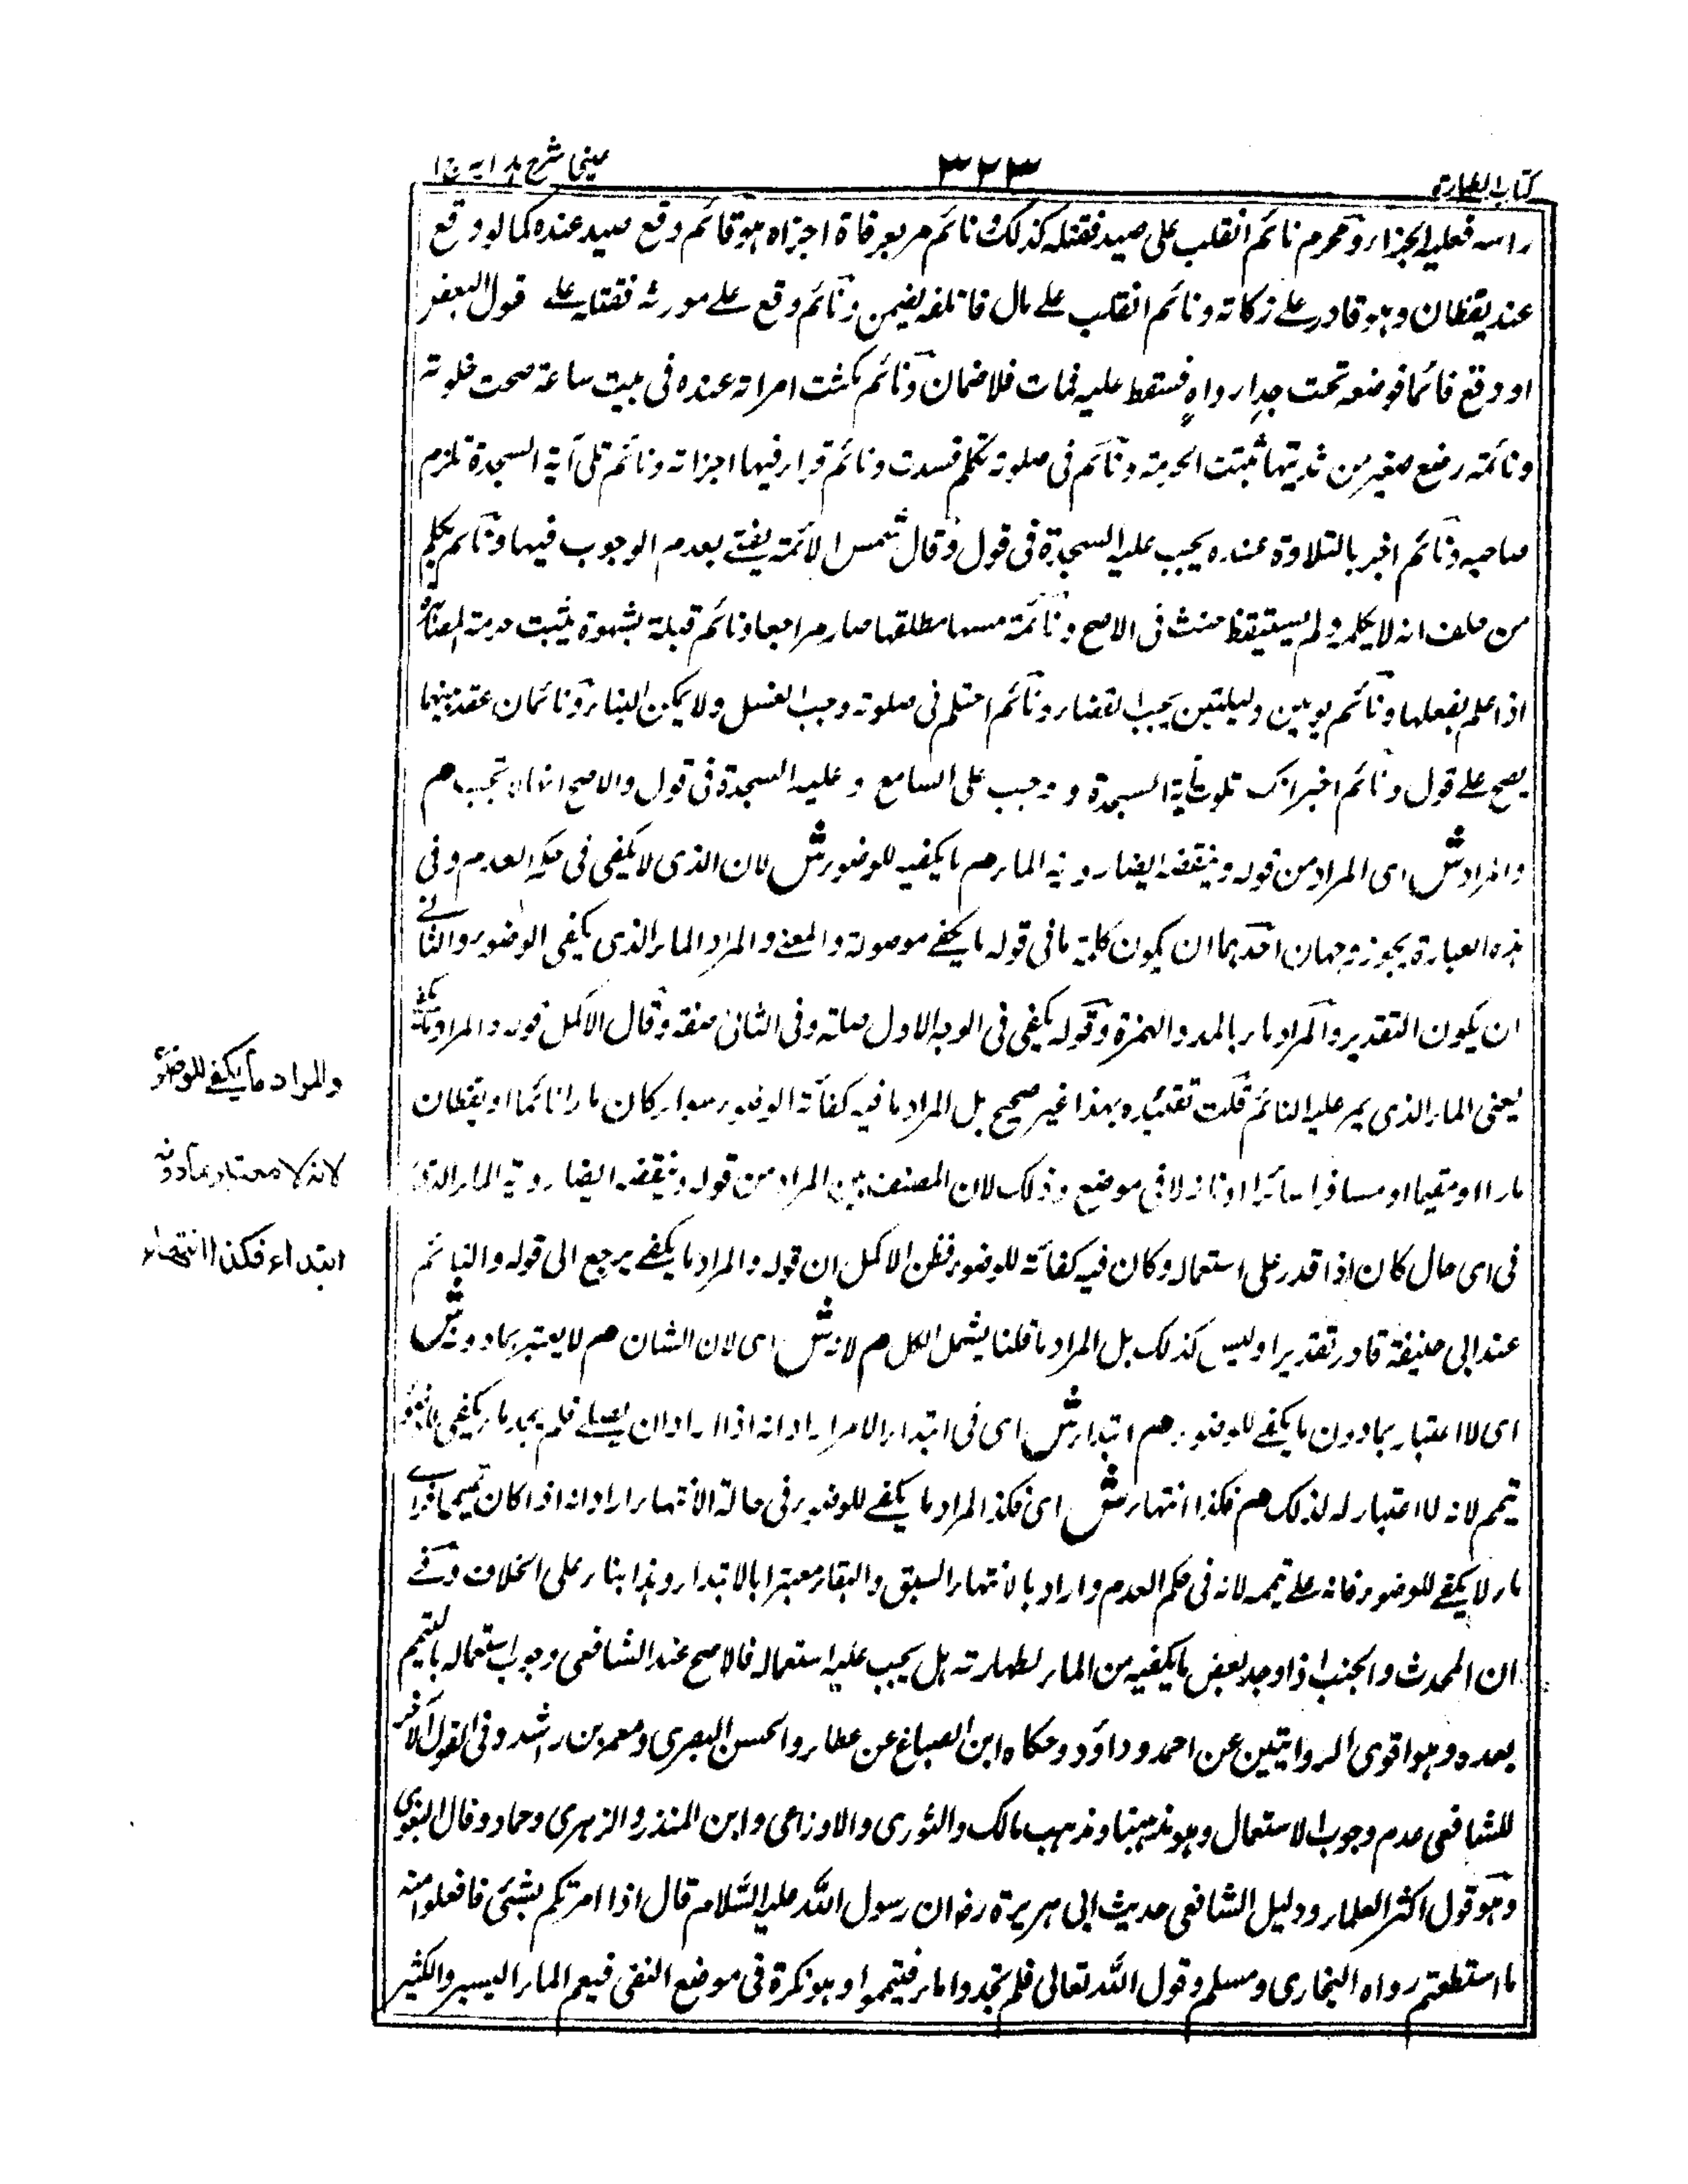 كتاب الطهارة
٣٢٣
عينى شرح هدايه ج ١
راسه فعليه الجزاء ومحرم نائم انقلب على صيد فقتله كذلك ونائم مر بعرفاة اجزاه هو قائم وقع صيد عنده كما لو وقع
عند يقظان وهو قادر على زكاته ونائم انقلب على مال فاتلفه يضمن ونائم وقع على مورثه فقتله على قول البعض
او وقع قائما فوضعه تحت جدار واهٍ فسقط عليه فمات فلا ضمان ونائم مكثت امراته عنده فى بيت ساعة صحت خلوته
ونائمة رضع صغير من ثديتها ثبتت الحرمة ونائم فى صلوته تكلم فسدت ونائم قرا فيها اجزاته ونائم تلى آية السجدة تلزم
صاحبه ونائم اخبر بالتلاوة عنده يجب عليه السجدة فى قول وقال شمس الائمة يفتى بعدم الوجوب فيها ونائم يكلم
من حلف انه لا يكلمه ولم يستيقظ حنث فى الاصح ونائمة مسها مطلقها صار مراجعا ونائم قبلة بشهوة يثبت حرمة المصاهرة
اذا علم بفعلها ونائم يومين وليلتين يجب القضاء ونائم احتلم فى صلوته وجب الغسل ولا يمكن البناء ونائمان عقد بينهما
يصح على قول ونائم اخبر انك تلوت آية السجدة و وجب على السامع و عليه السجدة فى قول والاصح انها لا تجب م
والمراد ش اى المراد من قوله وينقضه ايضا روية الماء م ما يكفيه للوضوء ش لان الذى لا يكفى فى حكم العدم وفى
هذه العبارة يجوز وجهان احدهما ان يكون كلمة ما فى قوله ما يكفى موصولة والمعنى والمراد الماء الذى يكفى الوضوء والثانى
ان يكون التقدير والمراد ماء بالمد والهمزة وقوله يكفى فى الوجه الاول صلته وفى الثانى صفة وقال الاكمل قوله والمراد ما يكفى
يعنى الماء الذى يمر عليه النائم قلت تقييده بهذا غير صحيح بل المراد ما فيه كفائة الوضوء سواء كان مارا نائما او يقظان
مارا او مقيما او مسافرا سائرا او نازلا فى موضع وذلك لان المصنف بين المراد من قوله وينقضه ايضا روية الماء الذى
فى اى حال كان اذا قدر على استعماله وكان فيه كفائة للوضوء فظن الاكمل ان قوله والمراد ما يكفى يرجع الى قوله والنائم
عند ابى حنيفة قادر تقديرا وليس كذلك بل المراد ما قلنا يشمل الكل م لانه ش اى لان الشان م لا يعتبر بما دونه ش
اى لا اعتبار بما دون ما يكفى للوضوء م ابتداء ش اى فى ابتداء الامر اراد انه اذا اراد ان يصلى فلم يجد ماء يكفى للوضوء
تيمم لانه لا اعتبار له لذلك م فكذا انتهاء ش اى فكذا المراد ما يكفى للوضوء فى حالة الانتهاء اراد انه اذا كان تيمما فراى
ماء لا يكفى للوضوء فانه على تيممه لانه فى حكم العدم واراد بالانتهاء السبق والبقاء معتبرا بالابتداء وهذا بناء على الخلاف وفى
ان المحدث والجنب اذا وجد بعض ما يكفيه من الماء لطهارته هل يجب عليه استعماله فالاصح عند الشافعى وجوب استعماله بالتيمم
بعده وهو اقوى الروايتين عن احمد وداؤد وحكاه ابن الصباغ عن عطاء والحسن البصرى ومعمر بن راشد وفى القول الآخر
للشافعى عدم وجوب الاستعمال وهو مذهبنا ومذهب مالك والثورى والاوزاعى وابن المنذر والزهرى وحماد وقال البغوى
وهو قول اكثر العلماء ودليل الشافعى حديث ابى هريرة رض ان رسول الله عليه السلام قال اذا امرتكم بشئى فافعلوا منه
ما استطعتم رواه البخارى ومسلم وقول الله تعالى فلم تجدوا ماء فتيمموا وهو نكرة فى موضع النفى فيعم الماء اليسير والكثير
والمراد ما يكفى للوضوء
لانه لا معتبر بما دونه
ابتداء فكذا انتهاء